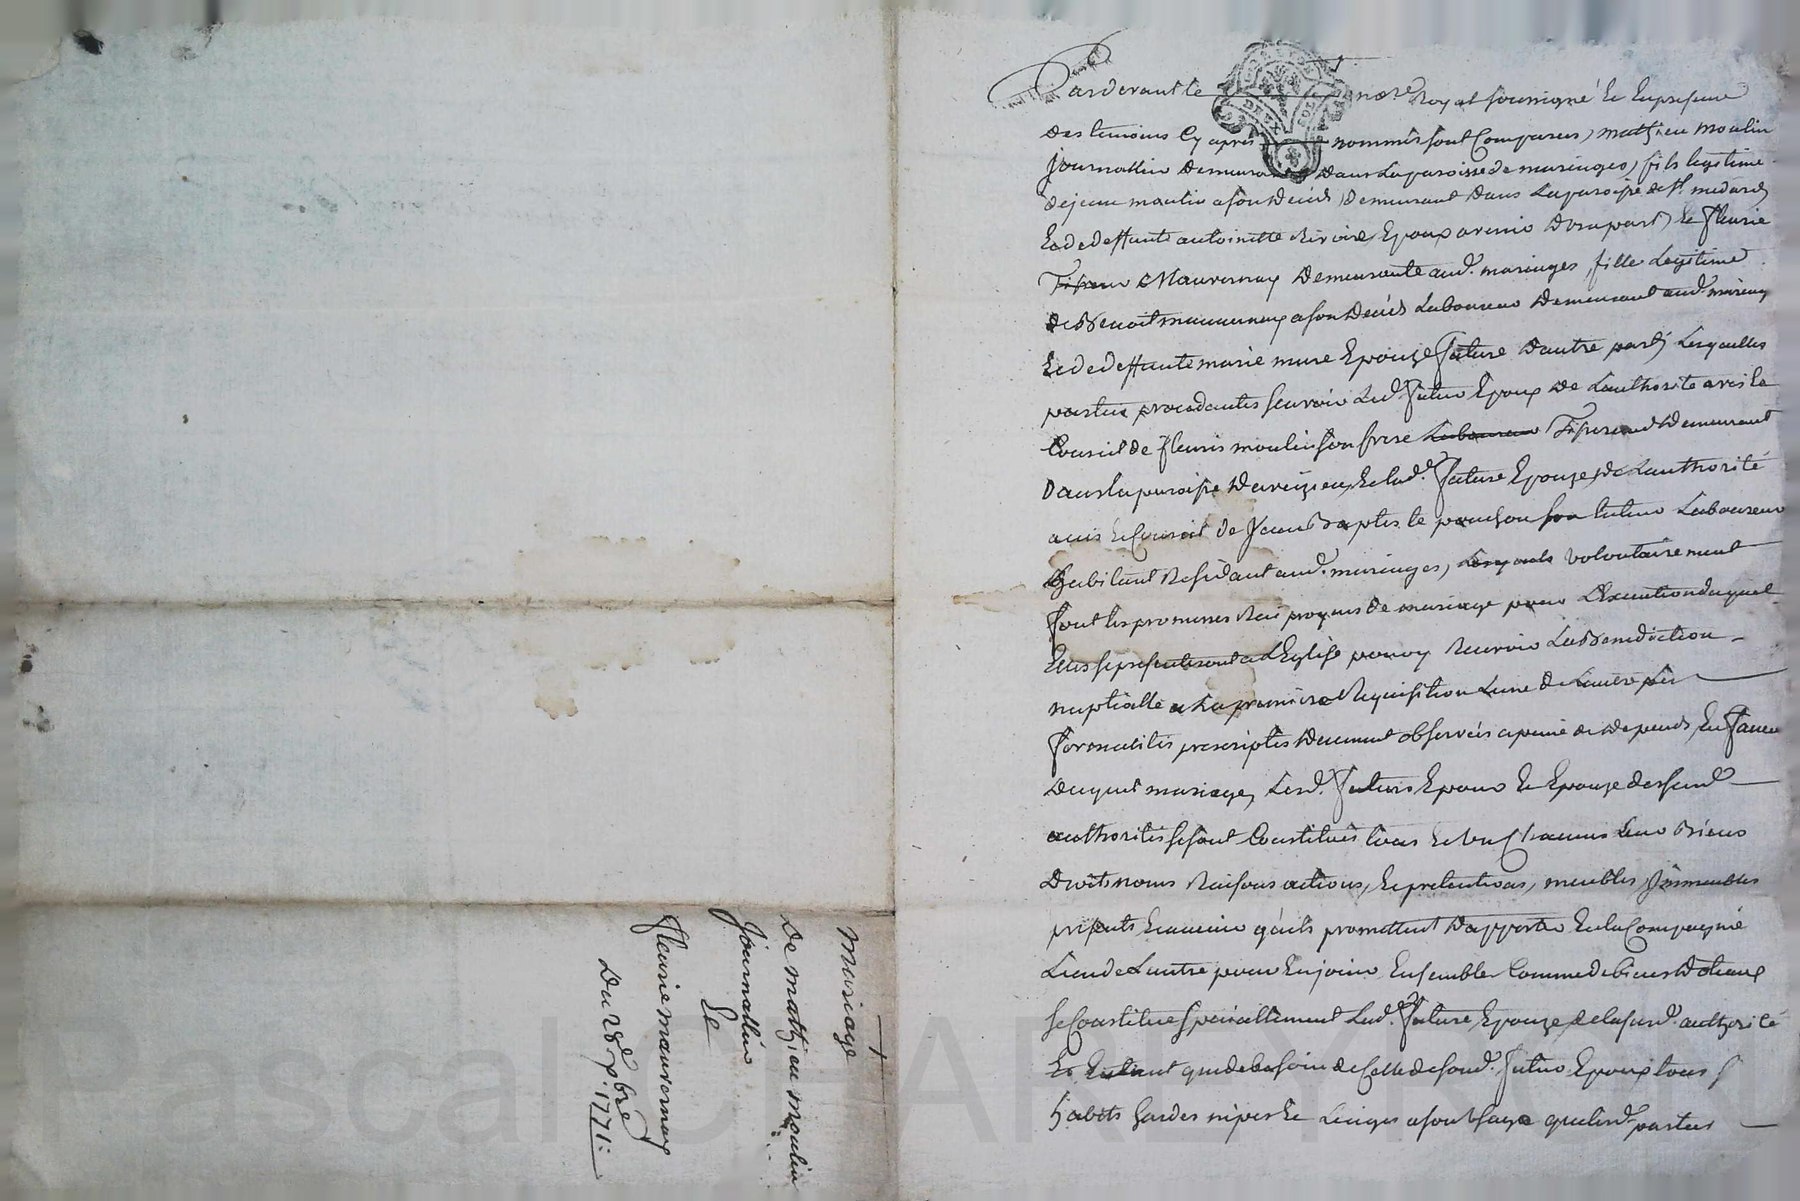 Pardevant le no.re Royal soussigné Et Enpresence
des temoins Cy apres nommés sont Comparus, mathieu moulin
journallier Demeurant Dans Laparoisse de maringes, fils legitime
dejean moulin asondeces Demeurant Dans Laparoisse de st. medard
Ede deffunte antoinette Epoux avenir Dunepart, Et fleurie
Mauvernay Demeurante aud. maringes, fille Legitime
de Benoit mauvernay asondeces Laboureur Demeurant aud. maring
Ede deffunte marie mure Epouze future Dautre part, Lesquelles
parties procedantes scavoir Led. futur Epoux De Lauthorité avis Et
Conseil de fleuris moulin son frere Laboureur Tisserand Demeurant
Dans laparoisse Et lad. future Epouze de Lauthorité
avis Et Conseil de Jean Baptiste ponchon son tuteur Laboureur
habitant Residant aud. maringes, Lesquels volontairement
font les promesses Reciproques de mariage pour L'Execution duquel
Eux sepresenteront a L'Eglise pour y Recevoir La Benediction
nuptialle a La premiere Requisition Lune de Lautre Les
formalités prescriptes Deuement observées apeine de depends, En faveur
Duquel mariage, Lesd. futurs Epoux Et Epouze desusd.
authorités sesont Constitués tous Et un Chacuns Leur Biens
Droits noms Raisons actions, Et pretentions, meubles, Immeubles
presents Eavenir quils promettent Dapporter En la Compagnie
Lun de Lautre pour En jouir Ensemble Comme de biens Dotaux
se Constitue specialement Lad. future Epouze de lasusd. authorité
Et Entant que de besoin de Celle de sond. futur Epoux tous s
habits hardes nipes Et Linges asonusage que lesd. parties
Mariage
De mathieu moulin
Journallier
Et
fleurie mauvernay
Du 28e. 7bre 1771.
Pascal CHARLYRON